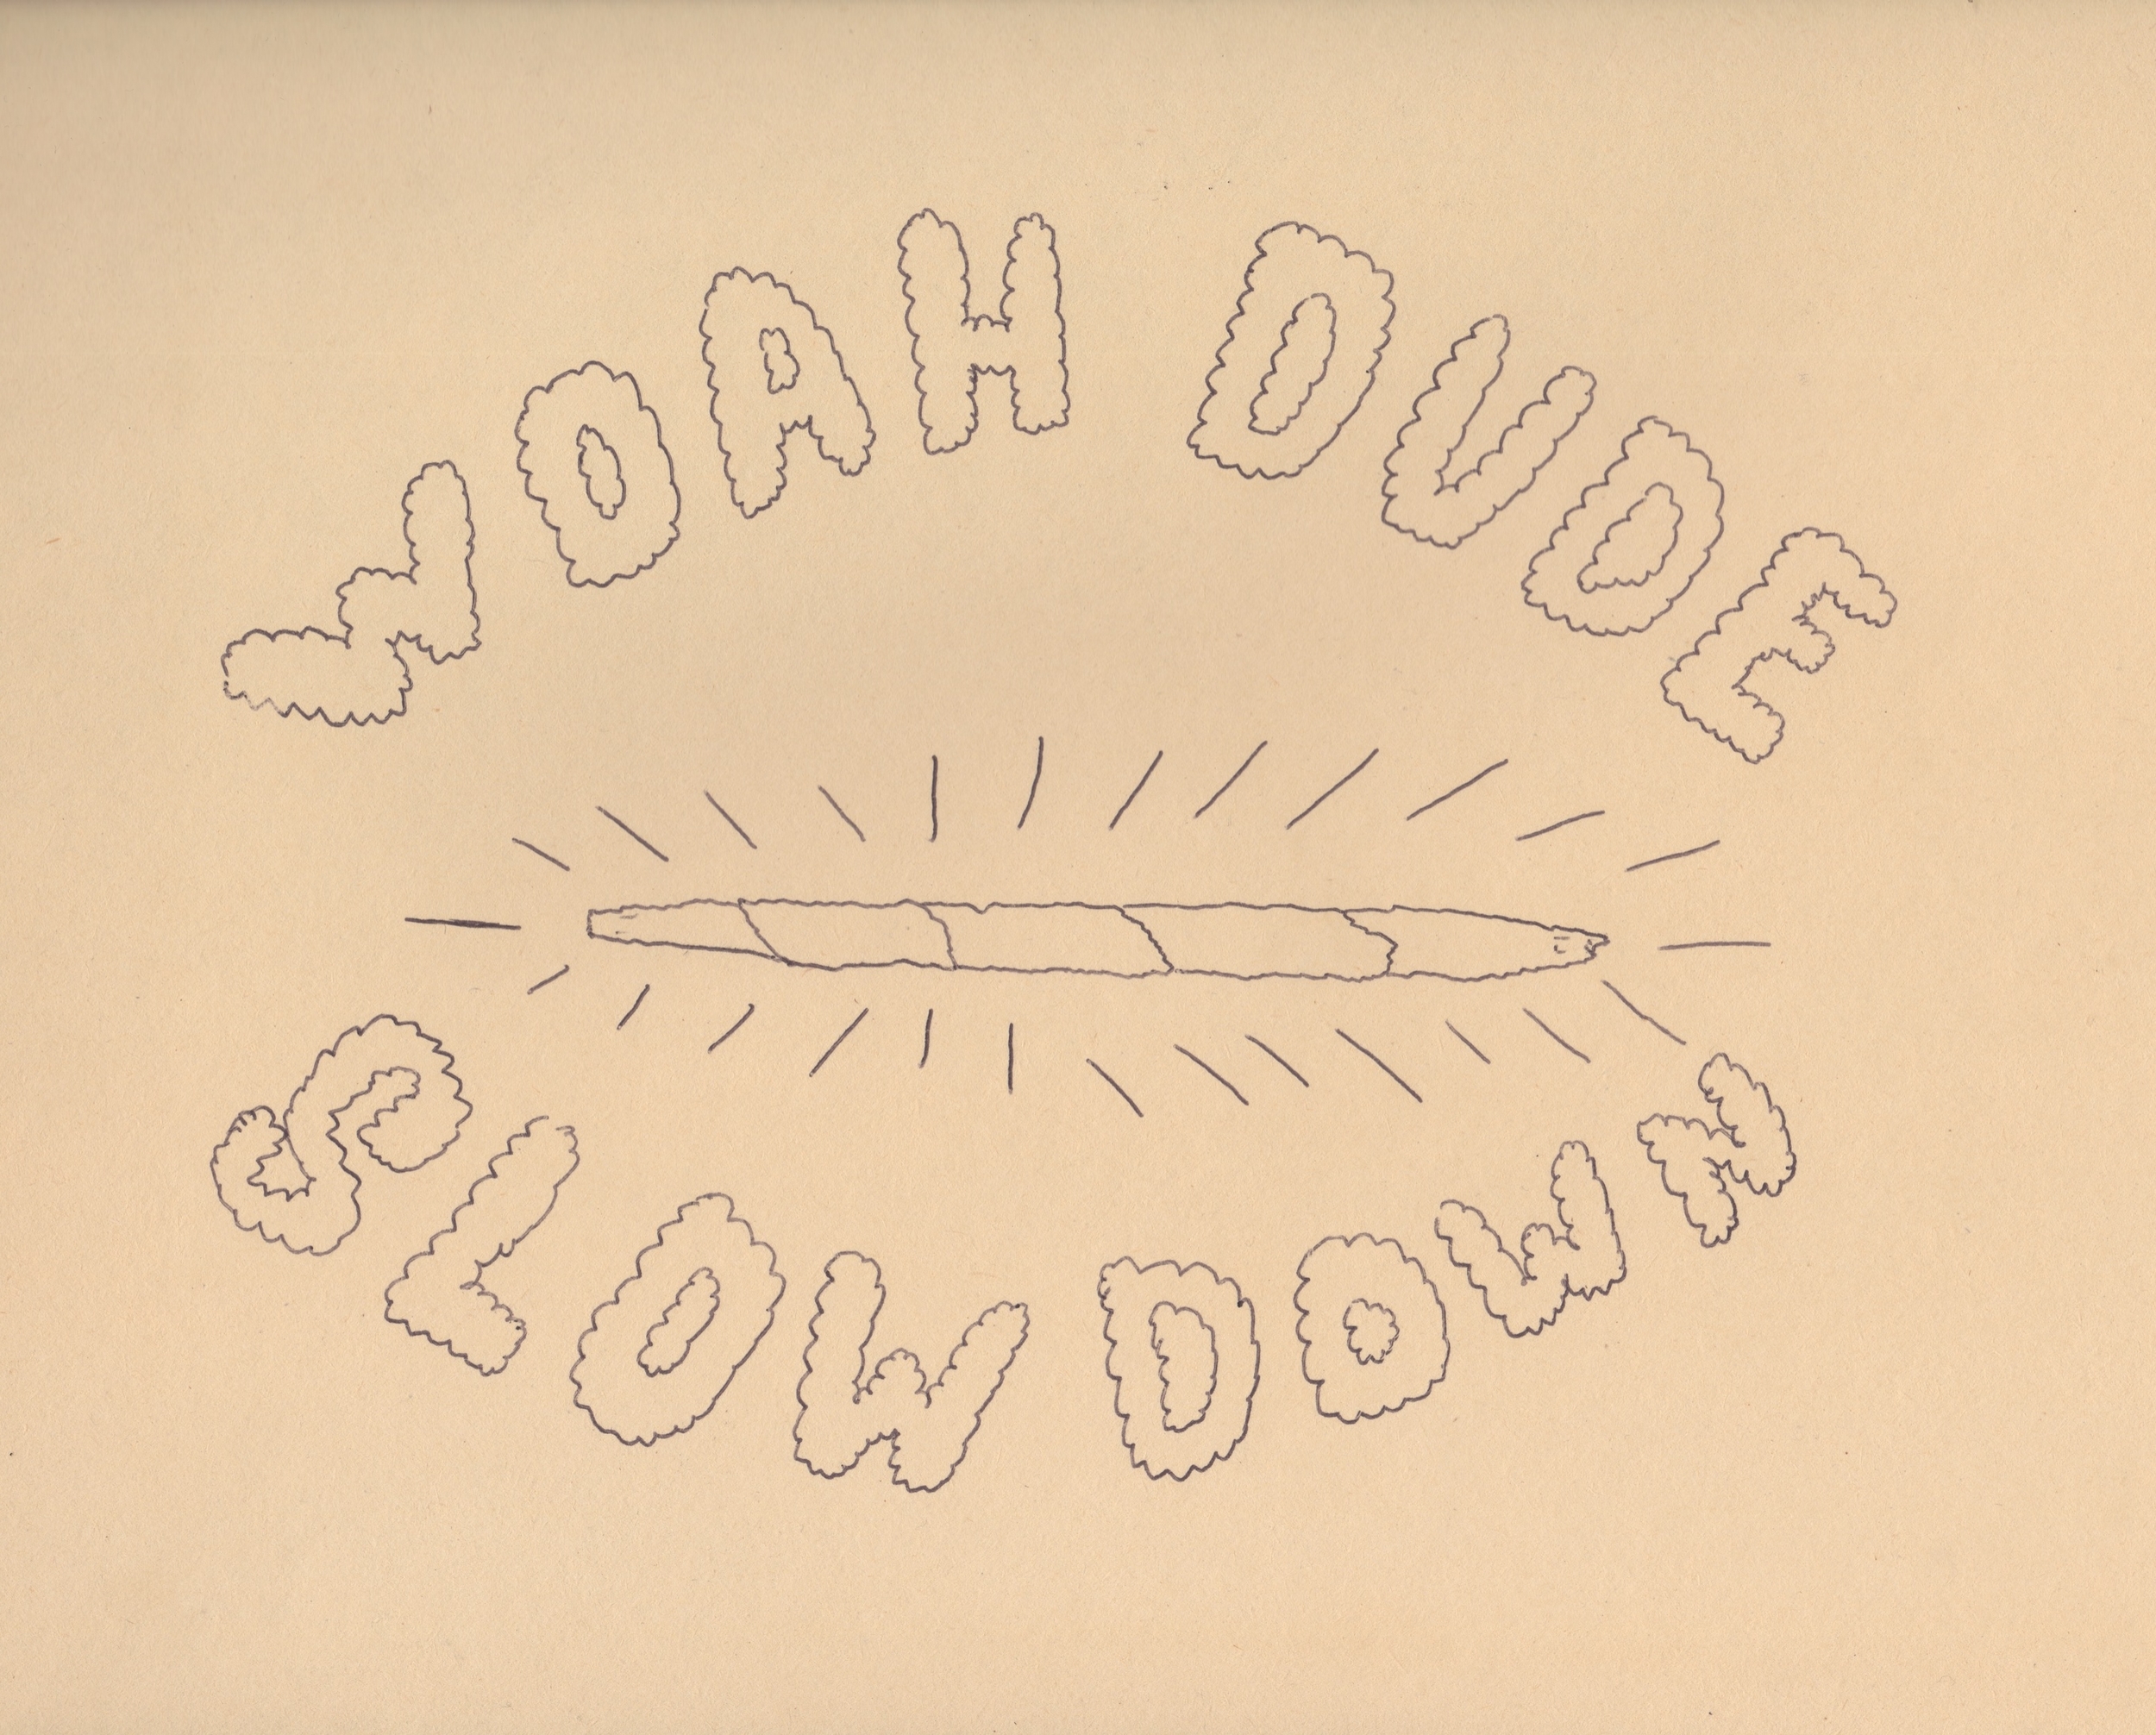 WOAH DUDE
SLOW DOWN